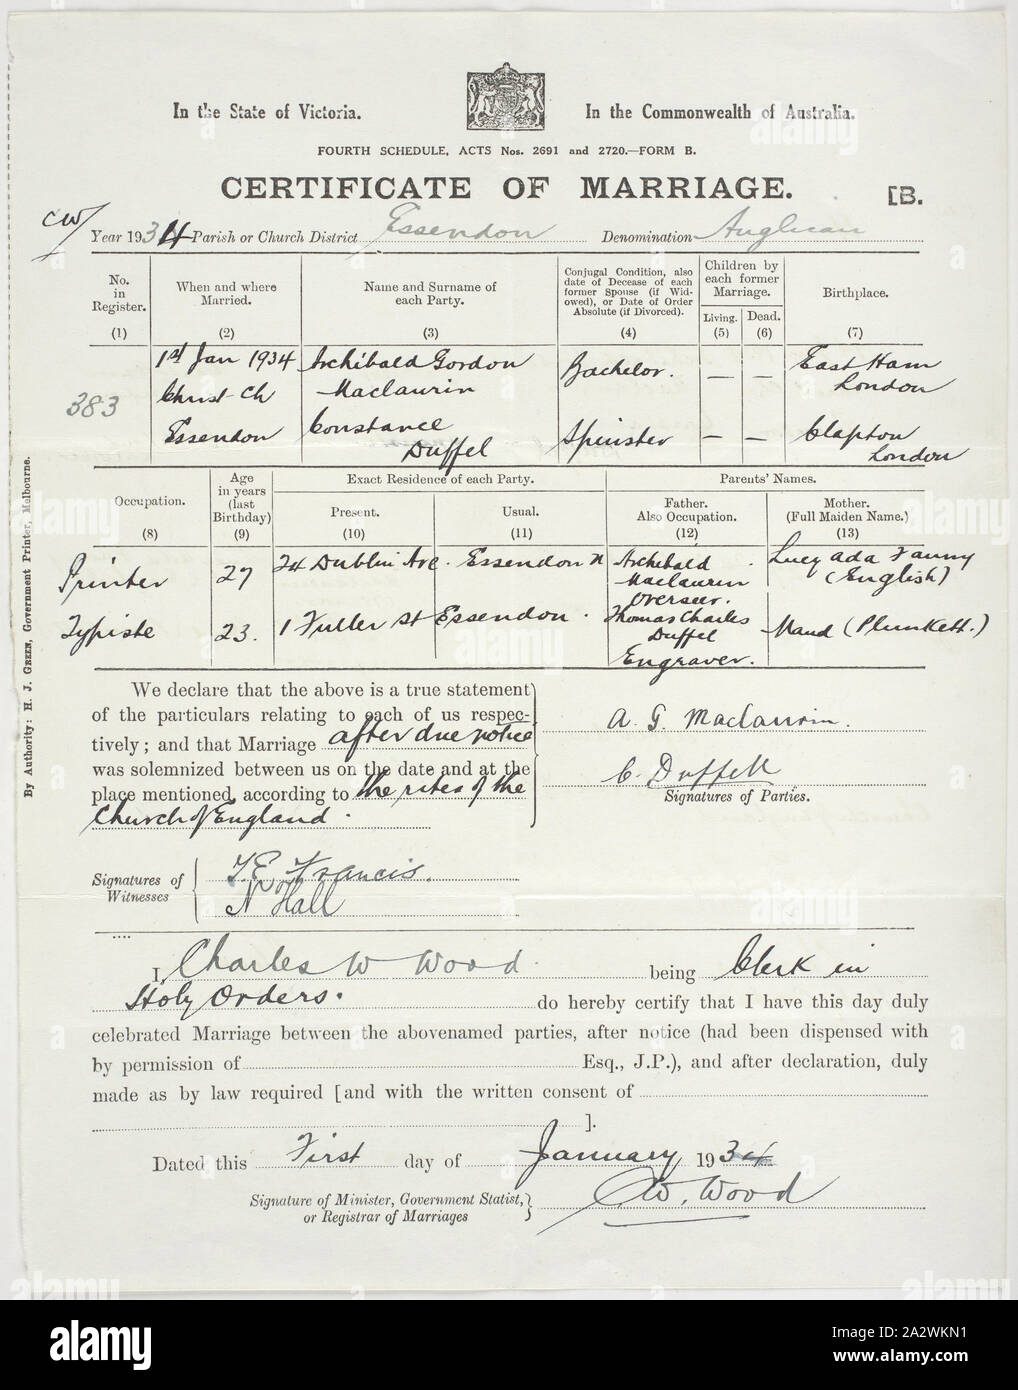 In the State of Victoria. In the Commonwealth of Australia.
FOURTH SCHEDULE, ACTS Nos. 2691 and 2720.—FORM B.
CERTIFICATE OF MARRIAGE. [B.
CW
Year 1934 Parish or Church District Essendon Denomination Anglican
No. in Register. (1)
When and where Married. (2)
Name and Surname of each Party. (3)
Conjugal Condition, also date of Decease of each former Spouse (if Widowed), or Date of Order Absolute (if Divorced). (4)
Children by each former Marriage.
Living. (5) Dead. (6)
Birthplace. (7)
1st Jan 1934 Archibald Gordon Bachelor. — — East Ham
Christ Ch Maclaurin London
383
Essendon Constance Spinster — — Clapton
Duffel London
Occupation. (8)
Age in years (last Birthday) (9)
Exact Residence of each Party.
Present. (10) Usual. (11)
Parents' Names.
Father. Also Occupation. (12)
Mother. (Full Maiden Name.) (13)
Printer 27 24 Dublin Ave. Essendon N Archibald Lucy Ada Fanny
Maclaurin (English)
Overseer.
Typiste 23. 1 Fuller St Essendon. Thomas Charles Maud (Plunkett.)
Duffel
Engraver.
We declare that the above is a true statement
of the particulars relating to each of us respec-
tively; and that Marriage after due notice
was solemnized between us on the date and at the
place mentioned, according to the rites of the
Church of England.
A. G. Maclaurin.
C. Duffell
Signatures of Parties.
Signatures of Witnesses
T. E. Francis.
N Hall
I Charles W Wood. being Clerk in
Holy Orders. do hereby certify that I have this day duly
celebrated Marriage between the abovenamed parties, after notice (had been dispensed with
by permission of Esq., J.P.), and after declaration, duly
made as by law required [and with the written consent of
].
Dated this First day of January 1934
Signature of Minister, Government Statist,
or Registrar of Marriages
CW. Wood
By Authority: H. J. GREEN, Government Printer, Melbourne.
alamy
Image ID: 2A2WKN1
www.alamy.com